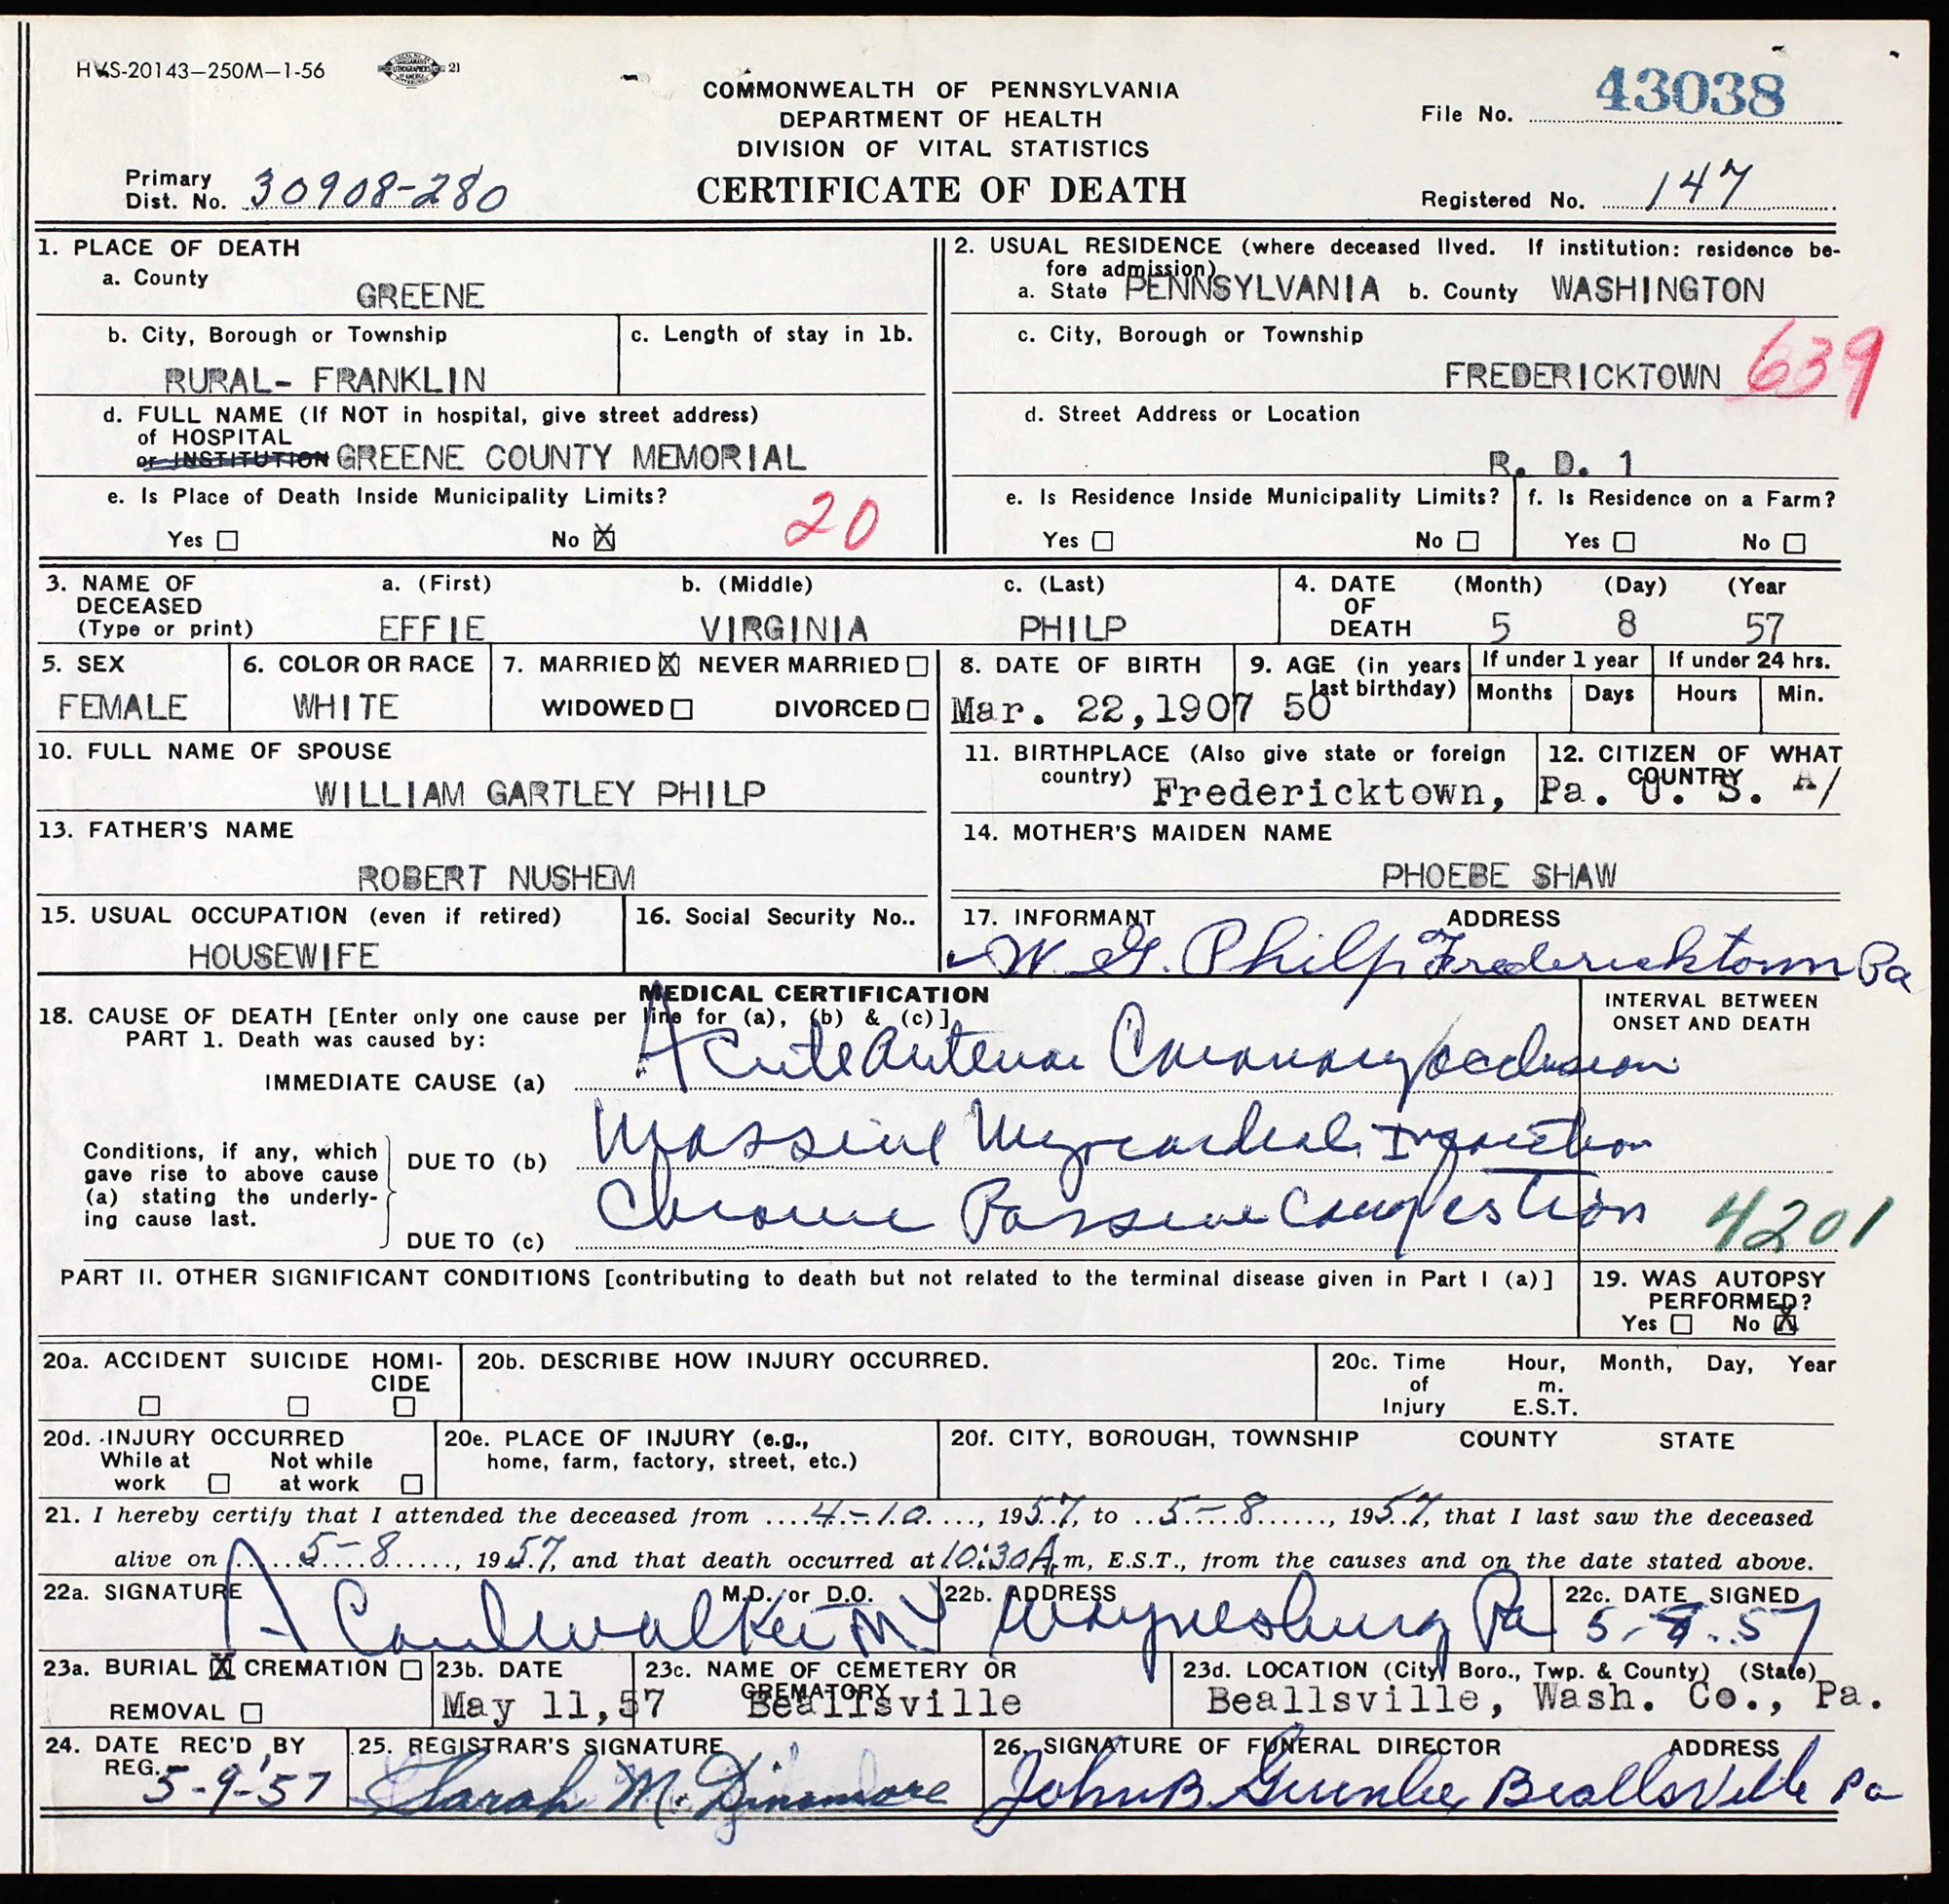 HVS-20143-250M-1-56 21
COMMONWEALTH OF PENNSYLVANIA
DEPARTMENT OF HEALTH
DIVISION OF VITAL STATISTICS
CERTIFICATE OF DEATH
File No. 43038
Primary
Dist. No. 30908-280
Registered No. 147
1. PLACE OF DEATH
a. County
GREENE
b. City, Borough or Township
RURAL- FRANKLIN
c. Length of stay in 1b.
d. FULL NAME (If NOT in hospital, give street address)
of HOSPITAL
or INSTITUTION GREENE COUNTY MEMORIAL
e. Is Place of Death Inside Municipality Limits?
Yes ☐ No ☒ 20
2. USUAL RESIDENCE (where deceased lived. If institution: residence be-
fore admission)
a. State PENNSYLVANIA b. County WASHINGTON
c. City, Borough or Township
FREDERICKTOWN 639
d. Street Address or Location
R. D. 1
e. Is Residence Inside Municipality Limits?
Yes ☐ No ☐
f. Is Residence on a Farm?
Yes ☐ No ☐
3. NAME OF DECEASED (Type or print)
a. (First) b. (Middle) c. (Last)
EFFIE VIRGINIA PHILP
4. DATE OF DEATH (Month) (Day) (Year
5 8 57
5. SEX
FEMALE
6. COLOR OR RACE
WHITE
7. MARRIED ☒ NEVER MARRIED ☐
WIDOWED ☐ DIVORCED ☐
8. DATE OF BIRTH
Mar. 22,1907
9. AGE (in years last birthday)
50
If under 1 year
Months Days
If under 24 hrs.
Hours Min.
10. FULL NAME OF SPOUSE
WILLIAM GARTLEY PHILP
11. BIRTHPLACE (Also give state or foreign
country) Fredericktown, Pa.
12. CITIZEN OF WHAT
COUNTRY U. S. A/
13. FATHER'S NAME
ROBERT NUSHEM
14. MOTHER'S MAIDEN NAME
PHOEBE SHAW
15. USUAL OCCUPATION (even if retired)
HOUSEWIFE
16. Social Security No..
17. INFORMANT ADDRESS
W. G. Philp Fredericktown Pa
MEDICAL CERTIFICATION
18. CAUSE OF DEATH [Enter only one cause per line for (a), (b) & (c)]
PART 1. Death was caused by:
IMMEDIATE CAUSE (a) Acute Anterior Coronary Occlusion
INTERVAL BETWEEN
ONSET AND DEATH
Conditions, if any, which
gave rise to above cause
(a) stating the underly-
ing cause last.
DUE TO (b) Massive Myocardial Infarction
DUE TO (c) Chronic Passive Congestion 4201
PART II. OTHER SIGNIFICANT CONDITIONS [contributing to death but not related to the terminal disease given in Part I (a)]
19. WAS AUTOPSY
PERFORMED?
Yes ☐ No ☒
20a. ACCIDENT SUICIDE HOMI-
CIDE
☐ ☐ ☐
20b. DESCRIBE HOW INJURY OCCURRED.
20c. Time of Injury Hour, Month, Day, Year
m.
E.S.T.
20d. INJURY OCCURRED
While at work ☐ Not while at work ☐
20e. PLACE OF INJURY (e.g.,
home, farm, factory, street, etc.)
20f. CITY, BOROUGH, TOWNSHIP COUNTY STATE
21. I hereby certify that I attended the deceased from 4-10, 1957, to 5-8, 1957, that I last saw the deceased
alive on 5-8, 1957, and that death occurred at 10:30 A.m, E.S.T., from the causes and on the date stated above.
22a. SIGNATURE M.D. or D.O.
22b. ADDRESS
Waynesburg Pa
22c. DATE SIGNED
23a. BURIAL ☒ CREMATION ☐
REMOVAL ☐
23b. DATE
May 11,57
23c. NAME OF CEMETERY OR
CREMATORY
Beallsville
23d. LOCATION (City, Boro., Twp. & County) (State)
Beallsville, Wash. Co., Pa.
24. DATE REC'D BY
REG. 5-9-57
25. REGISTRAR'S SIGNATURE
Sarah M. Dinsmore
26. SIGNATURE OF FUNERAL DIRECTOR ADDRESS
John B Greenlee Beallsville Pa